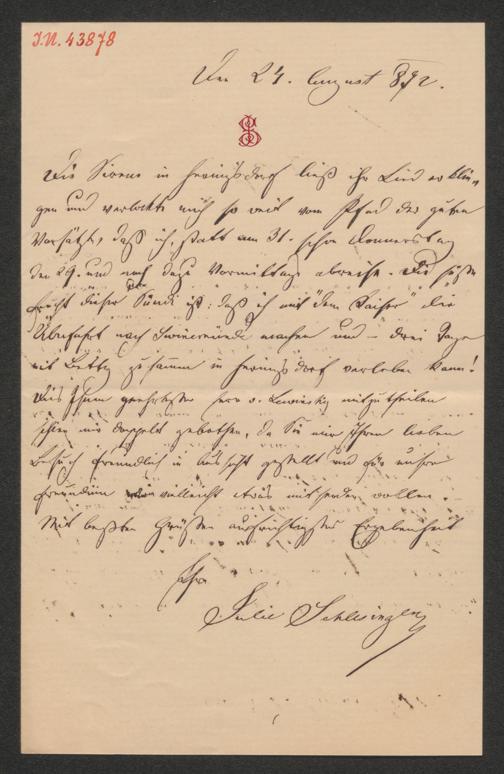 I.N. 43878
Den 24. August 892.
JS
Die Sirene in Heringsdorf ließ ihr Lied erklin-
gen und verlockte mich so weit vom Pfad der guten
Vorsätze, daß ich, statt am 31. schon Donnerstag
den 29. und noch dazu Vormittags abreise. Die süße
Frucht dieser Sünde ist: daß ich mit "dem Kaiser" die
Überfahrt nach Swinemünde machen und – drei Tage
mit Betty zusammen in Heringsdorf verleben kann!
Dies Ihnen geehrtester Herr v. Lewinsky mitzutheilen
schien mir doppelt gebothen, da Sie mir Ihren lieben
Besuch freundlich in Aussicht gestellt und für unsre
Freundin vielleicht etwas mitsenden wollen.
Mit besten Grüßen aufrichtigster Ergebenheit
Ihre
Julie Schlesinger